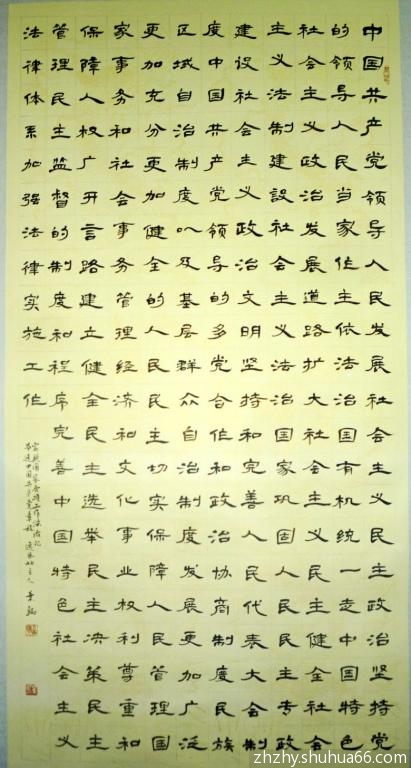 中国共产党领导人民发展社会主义民主政治坚持党
的领导人民当家作主依法治国有机统一走中国特色
社会主义政治发展道路扩大社会主义民主健全社会
主义法制建設社会主义法治国家巩固人民民主专政
建设社会主义政治文明坚持和完善人民代表大会制
度中国共产党领导的多党合作和政治协商制度民族
区域自治制度以及基层群众自治制度发展更加广泛
更加充分更加健全的人民民主切实保障人民管理国
家事务和社会事务管理经济和文化事业权利尊重和
保障人权广开言路建立健全民主选举民主决策民主
管理民主监督的制度和程序完善中国特色社会主义
法律体系加强法律实施工作
zhzhy.shuhua66.com